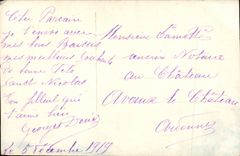 Cher Parrain
je t'envoie avec
mes bons Baisers
mes meilleurs souhaits
de bonne fête
Saint Nicolas
ton filleul qui
t'aime bien
Georges
le 5 Décembre 1919
Monsieur Lamotte
ancien Notaire
au Château
Avesnes le Château